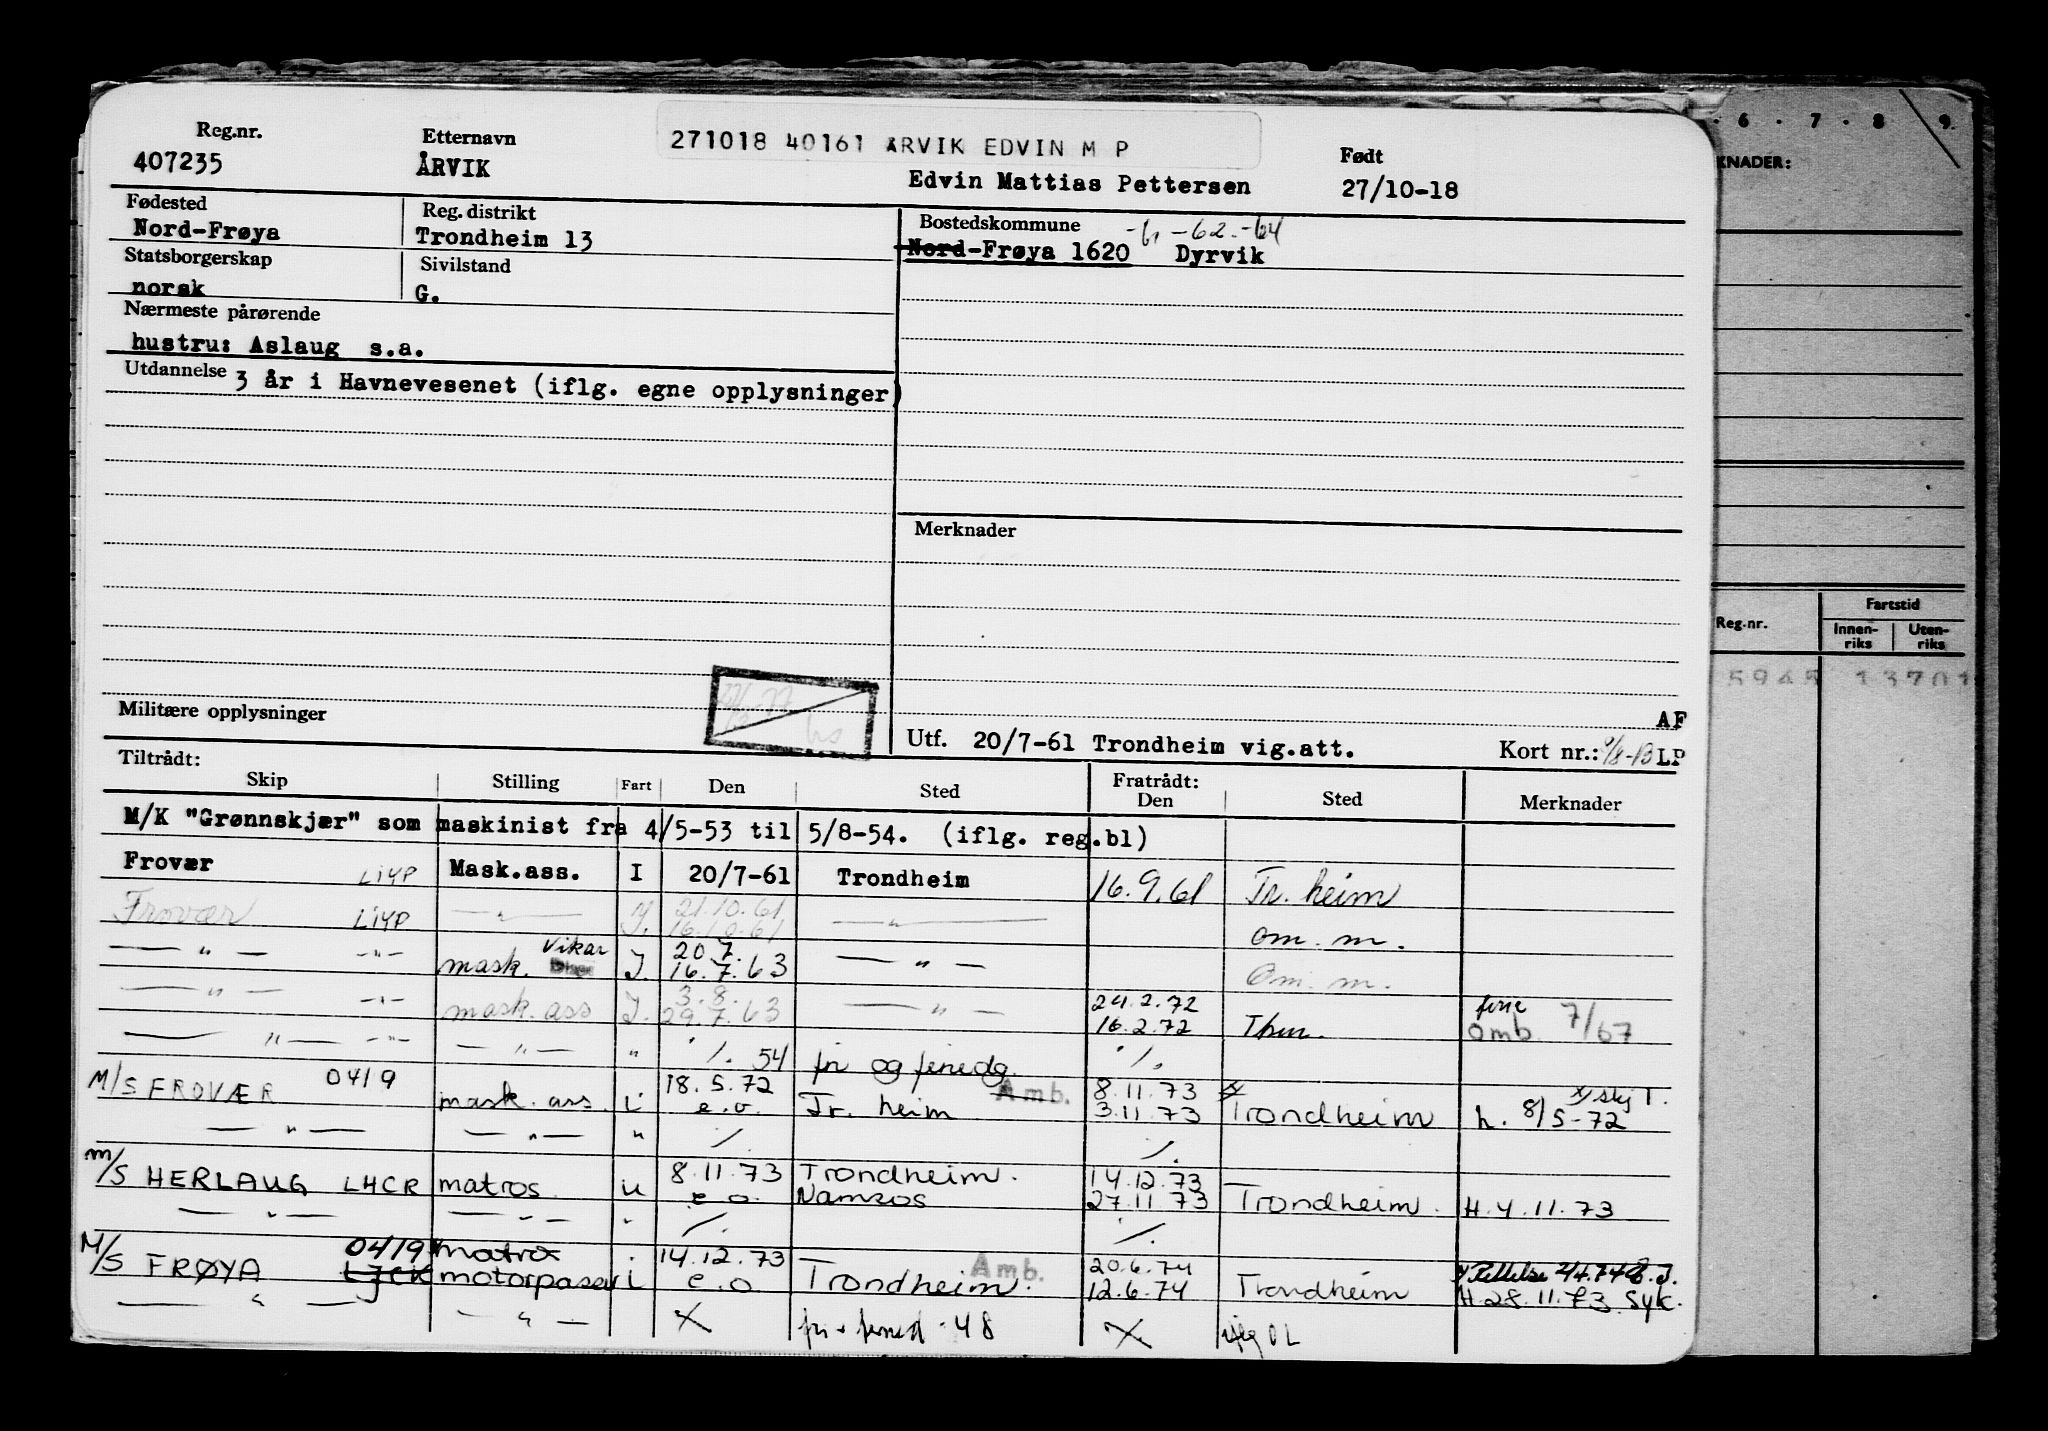 271018 40161 ÅRVIK EDVIN M P
Reg.nr. Etternavn Født
407235 ÅRVIK Edvin Mattias Pettersen 27/10-18
Fødested Reg. distrikt Bostedskommune -62.-64
Nord-Frøya Trondheim 13 Nord-Frøya 1620 Dyrvik
Statsborgerskap Sivilstand
norsk G.
Nærmeste pårørende
hustru: Aslaug s.a.
Utdannelse 3 år i Havnevesenet (iflg. egne opplysninger)
Merknader
Militære opplysninger
AF
Utf. 20/7-61 Trondheim vig.att. Kort nr.: LP
Tiltrådt: Fratrådt:
Skip Stilling Fart Den Sted Den Sted Merknader
M/K "Grønnskjær" som maskinist fra 4/5-53 til 5/8-54. (iflg. reg.bl)
Frovær LIYP Mask.ass. I 20/7-61 Trondheim 16.9.61 Tr. heim
Frovær LIYP — " — 21.10.61
J. 16.10.61 — " — om. m.
— " — -"- Vikar 20.7.
mask. J. 16.7.63 — " — Om. m.
— " — -"- 3.8. 24.2.72 ferie
mask. ass J. 29.7.63 — " — 16.2.72 Thm. Omb 7/67
— " — -"- — " — " ./. 54 fri og feriedg. ./.
M/S FROVÆR 0419 18.5.72 Amb. 8.11.73 x) skj T.
mask. ass. i e.o. Tr. heim 3.11.73 Trondheim h. 8/5-72
— " — — " — " ./. ./.
M/S HERLAUG LHCR matros u 8.11.73 Trondheim. 14.12.73
e.o. Namsos 27.11.73 Trondheim. H.4.11.73
— " — — " — " ./. ./.
M/S FRØYA 0419 matros 14.12.73 Amb. 20.6.74
LJCK motorpasser i e.o Trondheim. 12.6.74 Trondheim H 28.11.73 Syk.
— " — — " — fri + feried - 48
6 . 7 . 8 . 9.
KNADER:
Reg.nr. Fartstid
Innen-riks Uten-riks
5945 13701